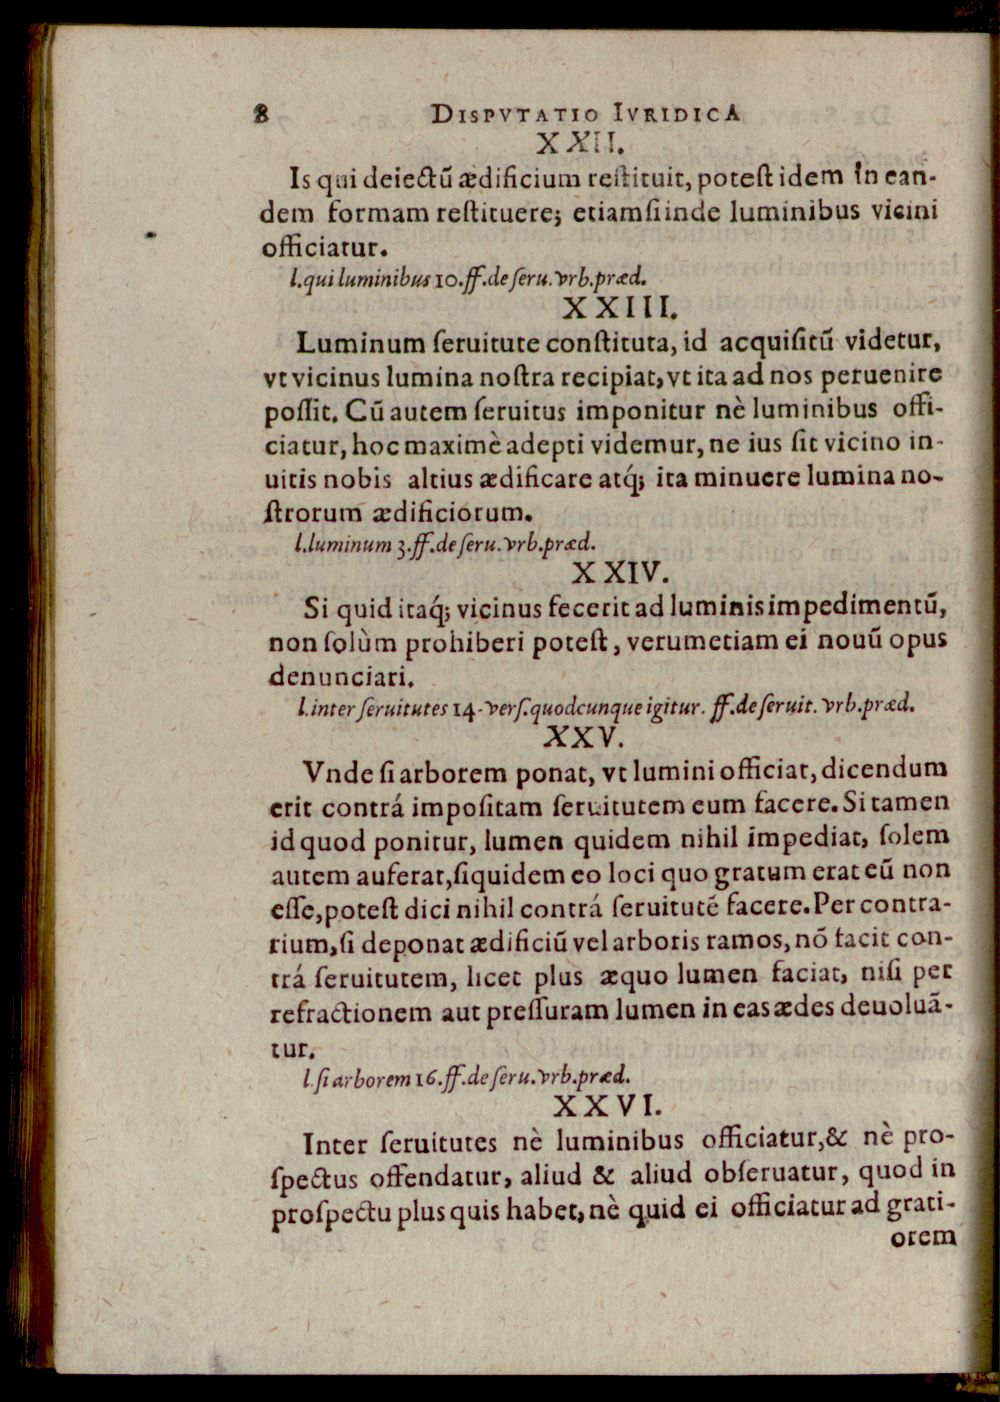 8 DISPVTATIO IVRIDICA
XXII.
Is qui deiectū ædificium reſtituit, poteſt idem in ean-
dem formam reſtituere; etiamſi inde luminibus vicini
officiatur.
l. qui luminibus 10. ff. de ſeru. vrb. præd.
XXIII.
Luminum ſeruitute conſtituta, id acquiſitū videtur,
vt vicinus lumina noſtra recipiat, vt ita ad nos peruenire
poſſit. Cū autem ſeruitus imponitur nè luminibus offi-
ciatur, hoc maximè adepti videmur, ne ius ſit vicino in-
uitis nobis altius ædificare atq́; ita minuere lumina no-
ſtrorum ædificiorum.
l. luminum 3. ff. de ſeru. vrb. præd.
XXIV.
Si quid itaq́; vicinus fecerit ad luminis impedimentū,
non ſolùm prohiberi poteſt, verumetiam ei nouū opus
denunciari.
l. inter ſeruitutes 14. verſ. quodcunque igitur. ff. de ſeruit. vrb. præd.
XXV.
Vnde ſi arborem ponat, vt lumini officiat, dicendum
erit contrá impoſitam ſeruitutem eum facere. Si tamen
id quod ponitur, lumen quidem nihil impediat, ſolem
autem auferat, ſiquidem eo loci quo gratum erat eū non
eſſe, poteſt dici nihil contrá ſeruitutē facere. Per contra-
rium, ſi deponat ædificiū vel arboris ramos, nō facit con-
trá ſeruitutem, licet plus æquo lumen faciat, niſi per
refractionem aut preſſuram lumen in eas ædes deuoluā-
tur.
l. ſi arborem 16. ff. de ſeru. vrb. præd.
XXVI.
Inter ſeruitutes nè luminibus officiatur, & nè pro-
ſpectus offendatur, aliud & aliud obſeruatur, quod in
proſpectu plus quis habet, nè quid ei officiatur ad grati-
orem